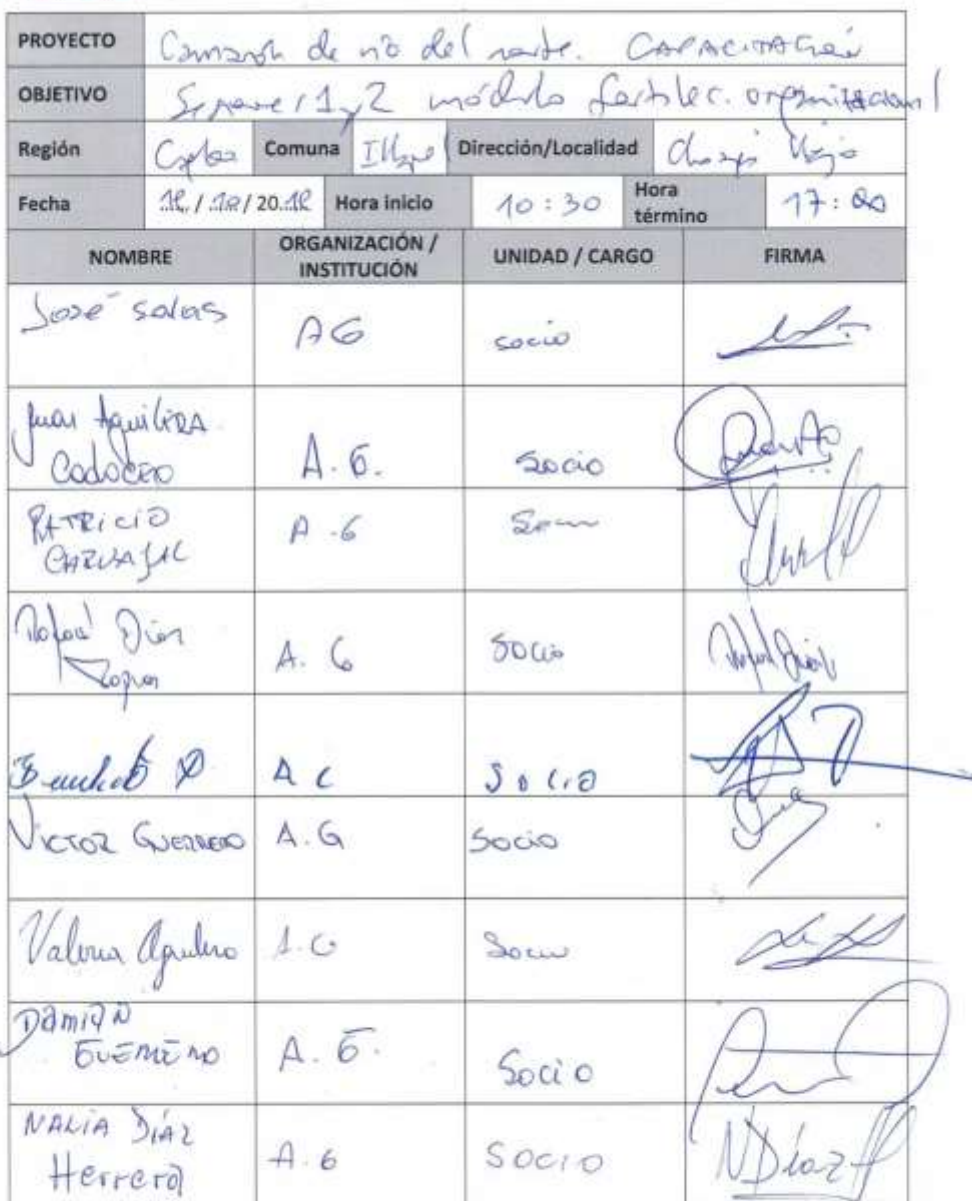 PROYECTO Camarón de río del norte. CAPACITACIÓN
OBJETIVO 1 y 2 módulo fortalec. organizacional
Región Comuna Illapel Dirección/Localidad
Fecha 12 / 10 / 20 12 Hora inicio 10 : 30 Hora término 17 : 00
NOMBRE ORGANIZACIÓN / INSTITUCIÓN UNIDAD / CARGO FIRMA
José Salas AG socio
Juan Aguilera
Codoceo A. G. Socio
PATRICIO
CARVAJAL A. G Socio
Rafael Díaz A. G Socio
A G Socio
VICTOR GUERRERO A. G Socio
Valeria Aguilera A. G Socio
DAMIAN
GUERRERO A. G. Socio
NALIA DÍAZ
Herrera A. G SOCIO NDíazH